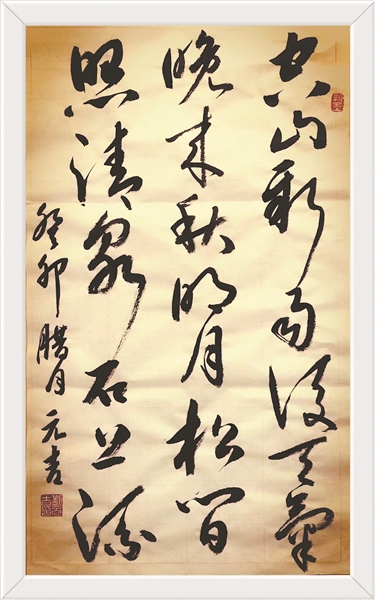 空山新雨後天氣
晚来秋明月松間
照清泉石上流
癸卯腊月元吉